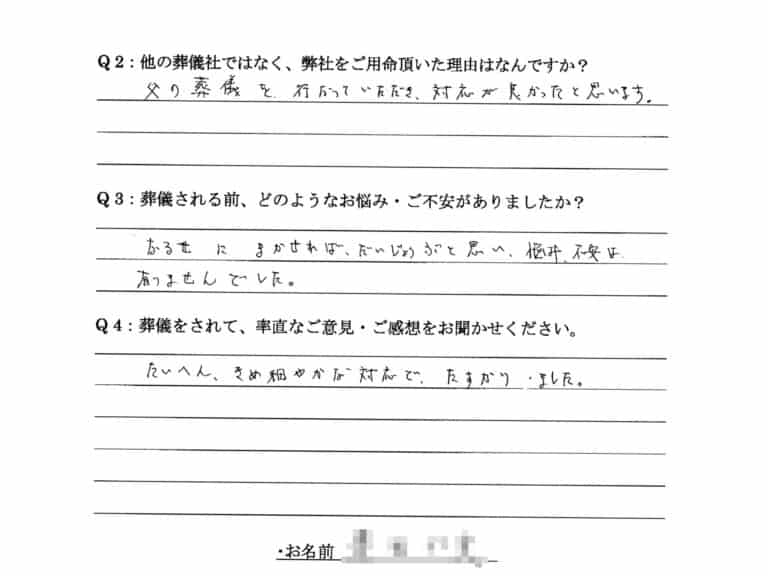 Q2：他の葬儀社ではなく、弊社をご用命頂いた理由はなんですか？
父の葬儀を、行なっていただき、対応が良かったと思います。
Q3：葬儀される前、どのようなお悩み・ご不安がありましたか？
なるせに まかされば、だいじょうぶと思い、悩み、不安は
有りませんでした。
Q4：葬儀をされて、率直なご意見・ご感想をお聞かせください。
たいへん、きめ細やかな対応で、たすかりました。
・お名前